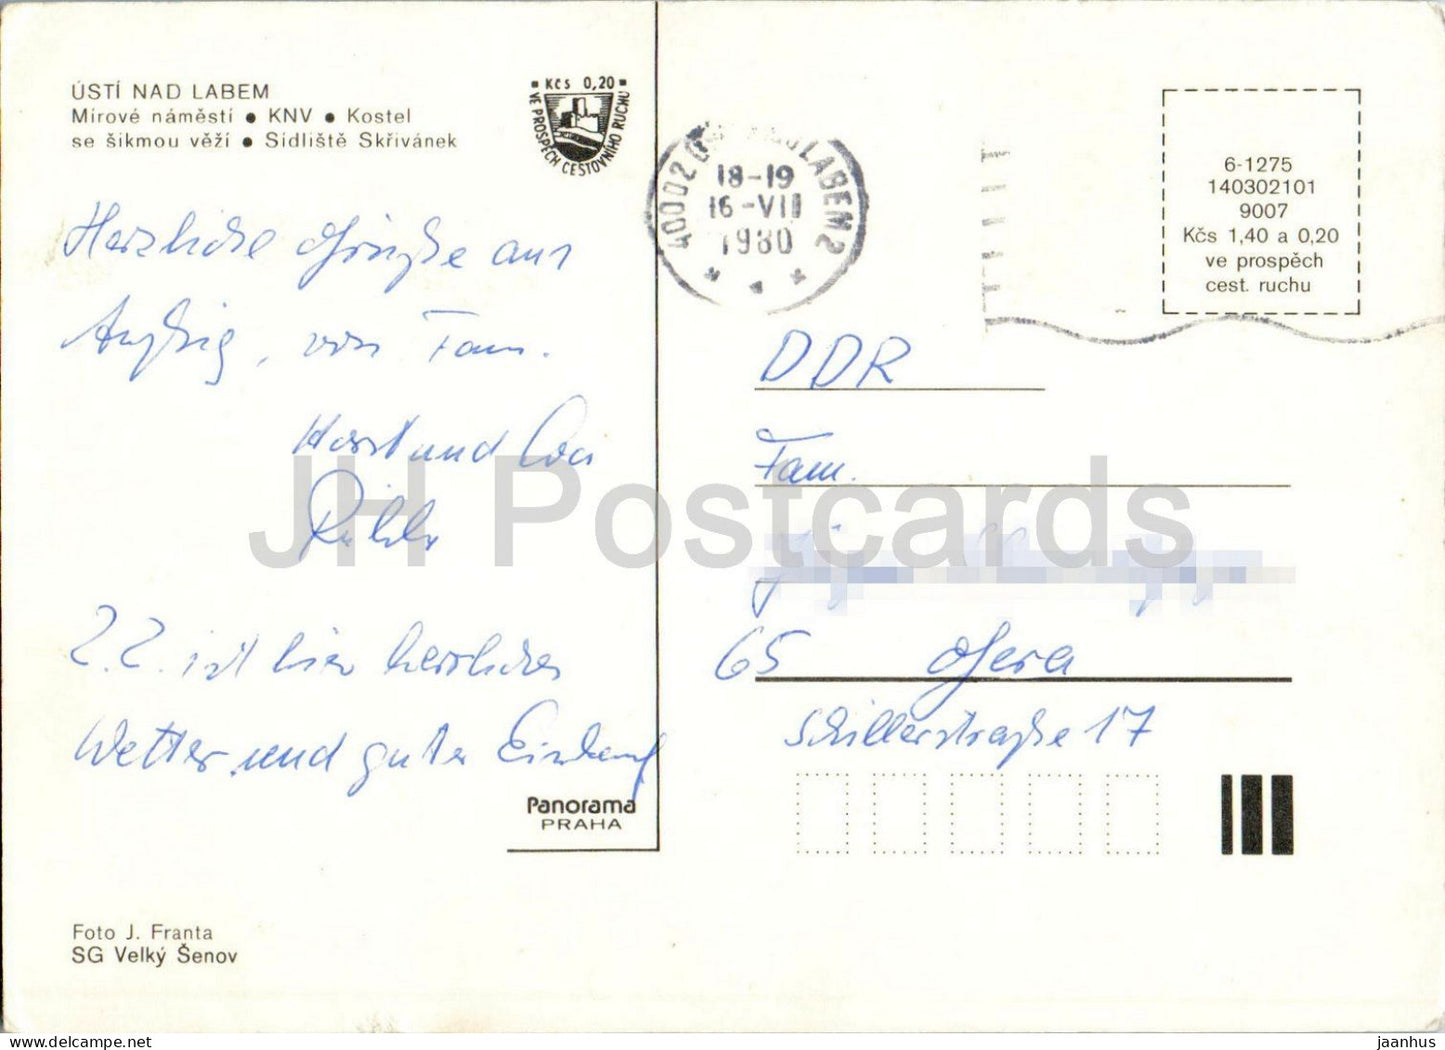 ÚSTÍ NAD LABEM
Mírové náměstí ● KNV ● Kostel
se šikmou věží ● Sídliště Skřivánek
Kčs 0,20
VE PROSPĚCH CESTOVNÍHO RUCHU
40002 LABEM 2
18-19
16-VII
1980
6-1275
140302101
9007
Kčs 1,40 a 0,20
ve prospěch
cest. ruchu
Herzliche Grüße aus
, von Fam.
Horst und
Z.Z. ist hier herrliches
Wetter und guter
DDR
Fam.
65 Gera
Schillerstraße 17
JH Postcards
Panorama
PRAHA
Foto J. Franta
SG Velký Šenov
www.jaanhus.com
jaanhus